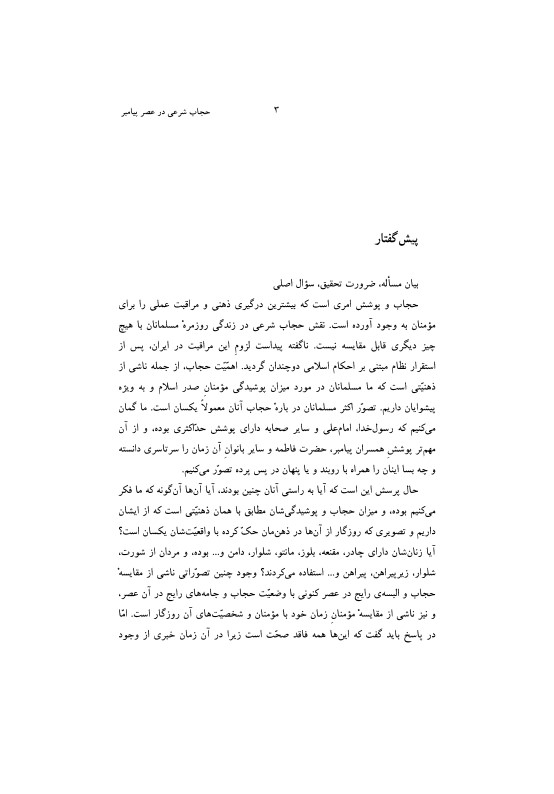 حجاب شرعی در عصر پیامبر ۳
پیش‌گفتار
بیان مسأله، ضرورت تحقیق، سؤال اصلی
حجاب و پوشش امری است که بیشترین درگیری ذهنی و مراقبت عملی را برای
مؤمنان به وجود آورده است. نقش حجاب شرعی در زندگی روزمرهٔ مسلمانان با هیچ
چیز دیگری قابل مقایسه نیست. ناگفته پیداست لزومِ این مراقبت در ایران، پس از
استقرار نظام مبتنی بر احکام اسلامی دوچندان گردید. اهمّیّت حجاب، از جمله ناشی از
ذهنیّتی است که ما مسلمانان در مورد میزان پوشیدگی مؤمنانِ صدر اسلام و به ویژه
پیشوایان داریم. تصوّر اکثر مسلمانان در بارهٔ حجاب آنان معمولاً یکسان است. ما گمان
می‌کنیم که رسول‌خدا، امام‌علی و سایر صحابه دارای پوشش حدّاکثری بوده، و از آن
مهم‌تر پوششِ همسران پیامبر، حضرت فاطمه و سایر بانوانِ آن زمان را سرتاسری دانسته
و چه بسا اینان را همراه با روبند و یا پنهان در پس پرده تصوّر می‌کنیم.
حال پرسش این است که آیا به راستی آنان چنین بودند، آیا آن‌ها آن‌گونه که ما فکر
می‌کنیم بوده، و میزان حجاب و پوشیدگی‌شان مطابق با همان ذهنیّتی است که از ایشان
داریم و تصویری که روزگار از آن‌ها در ذهن‌مان حکّ کرده با واقعیّت‌شان یکسان است؟
آیا زنان‌شان دارای چادر، مقنعه، بلوز، مانتو، شلوار، دامن و... بوده، و مردان از شورت،
شلوار، زیرپیراهن، پیراهن و... استفاده می‌کردند؟ وجود چنین تصوّراتی ناشی از مقایسهٔ
حجاب و البسه‌ی رایج در عصر کنونی با وضعیّت حجاب و جامه‌های رایج در آن عصر،
و نیز ناشی از مقایسهٔ مؤمنانِ زمان خود با مؤمنان و شخصیّت‌های آن روزگار است. امّا
در پاسخ باید گفت که این‌ها همه فاقد صحّت است زیرا در آن زمان خبری از وجود